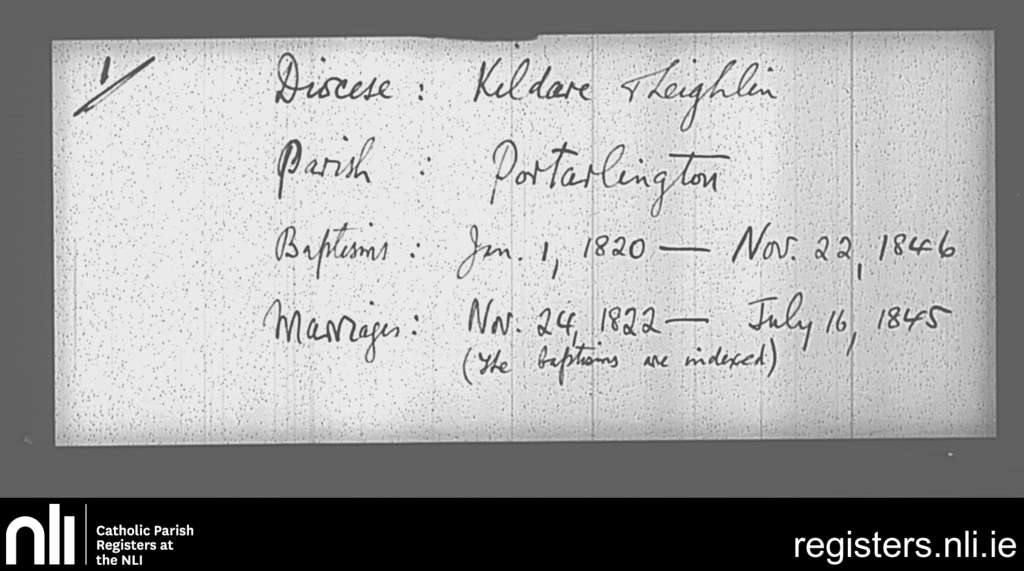 1/
Diocese : Kildare & Leighlin
Parish : Portarlington
Baptisms : Jan. 1, 1820 — Nov. 22, 1846
Marriages : Nov. 24, 1822 — July 16, 1845
(The baptisms are indexed)
nli
Catholic Parish
Registers at
the NLI
registers.nli.ie